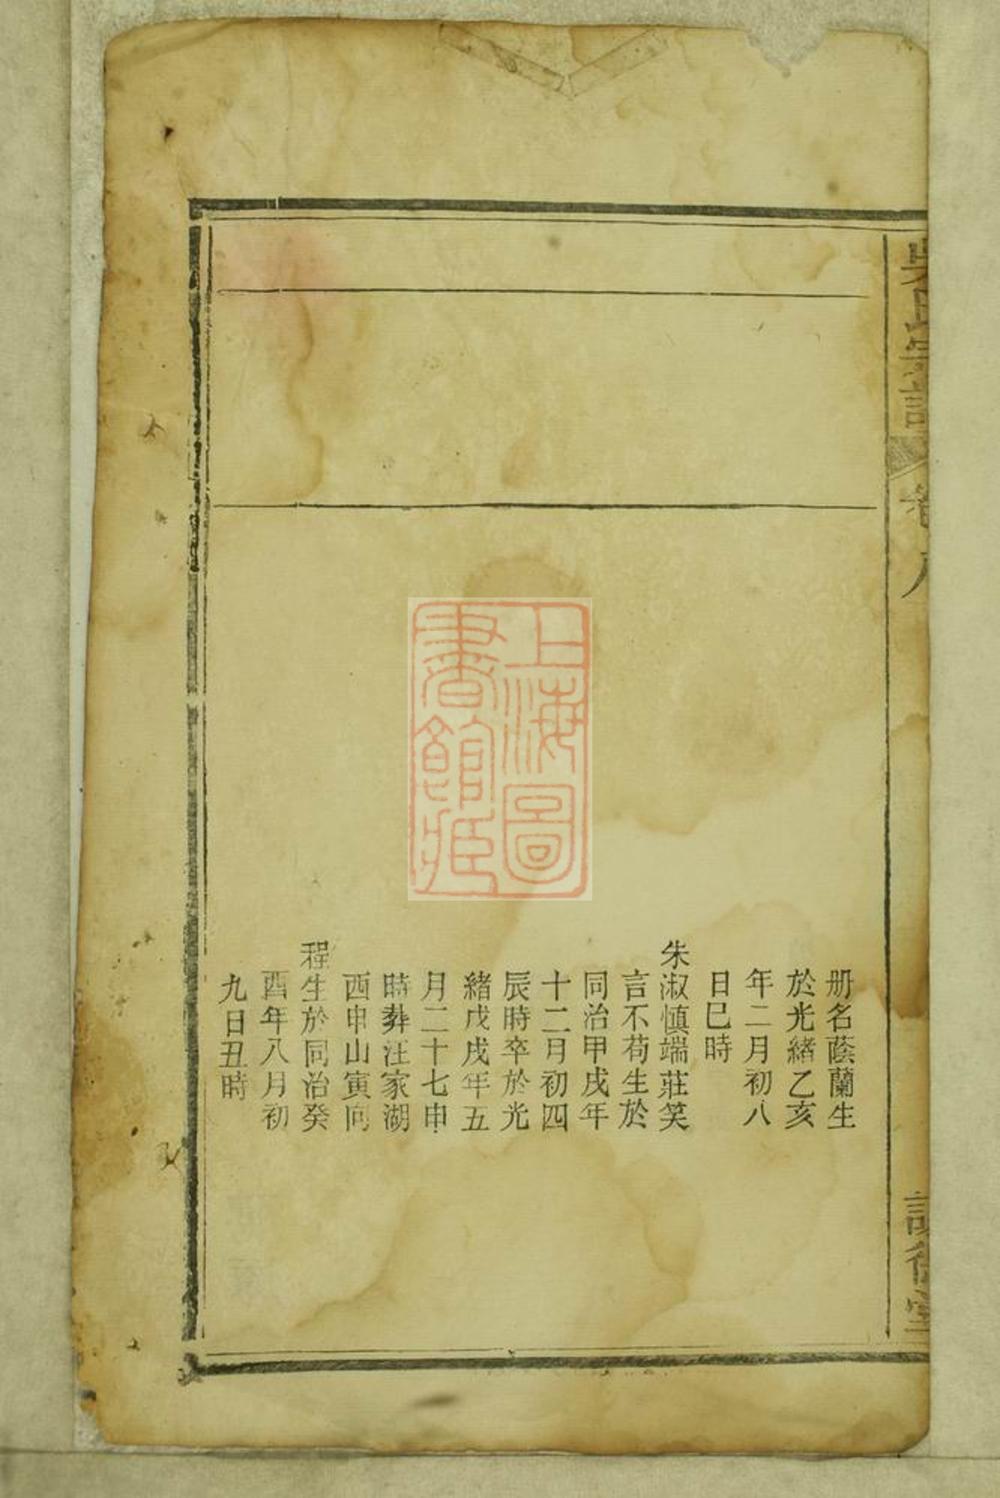 吳氏宗譜
卷八
册名蔭蘭生
於光緒乙亥
年二月初八
日巳時
朱淑慎端莊笑
言不苟生於
同治甲戌年
十二月初四
辰時卒於光
緒戊戌年五
月二十七申
時葬汪家湖
酉申山寅向
程生於同治癸
酉年八月初
九日丑時
上海圖
書館藏